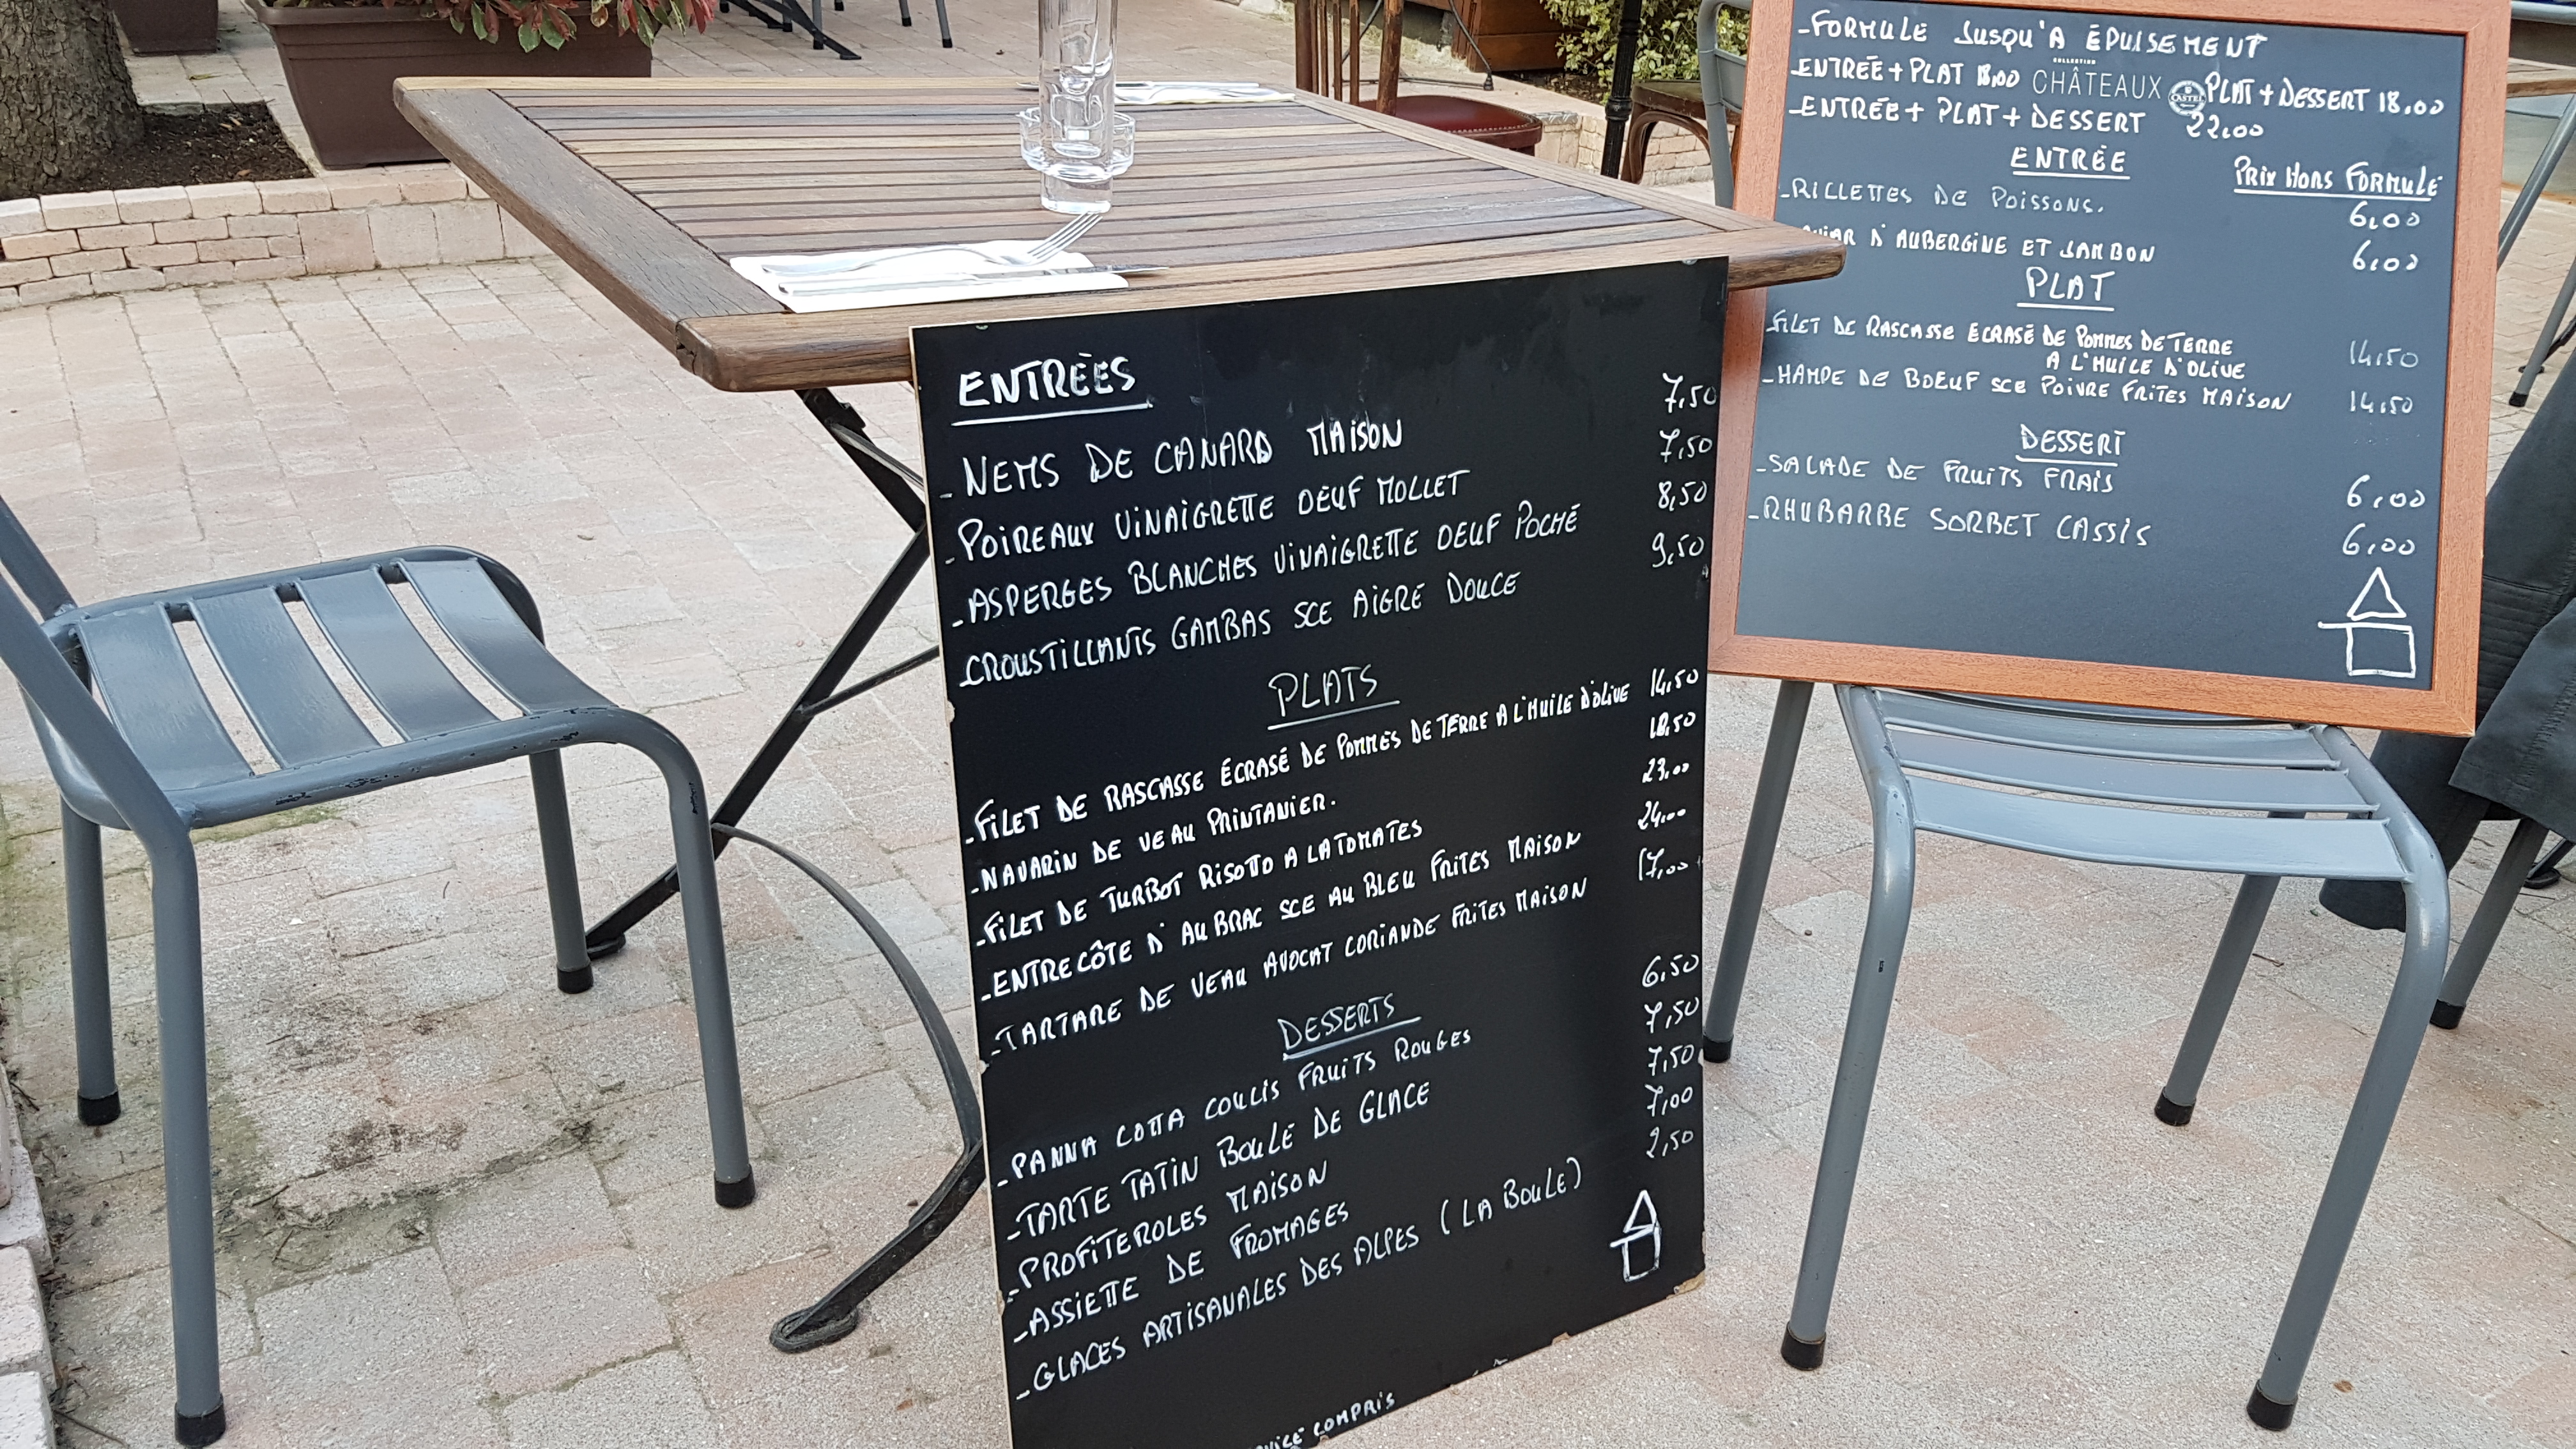 ENTRÉES
- NEMS DE CANARD MAISON 7,50
- POIREAUX VINAIGRETTE OEUF MOLLET 7,50
- ASPERGES BLANCHES VINAIGRETTE OEUF POCHÉ 8,50
- CROUSTILLANTS GAMBAS SCE AIGRE DOUCE 9,50
PLATS
- FILET DE RASCASSE ÉCRASÉ DE POMMES DE TERRE A L'HUILE D'OLIVE 14,50
- NAVARIN DE VEAU PRINTANIER. 18,50
- FILET DE TURBOT RISOTTO A LA TOMATES 23,00
- ENTRECÔTE D'AUBRAC SCE AU BLEU FRITES MAISON 24,00
- TARTARE DE VEAU AVOCAT CORIANDE FRITES MAISON 17,00
DESSERTS
- PANNA COTTA COULIS FRUITS ROUGES 6,50
- TARTE TATIN BOULE DE GLACE 7,50
- PROFITEROLES MAISON 7,50
- ASSIETTE DE FROMAGES 7,00
- GLACES ARTISANALES DES ALPES (LA BOULE) 2,50
COMPRIS
- FORMULE JUSQU'A ÉPUISEMENT
COLLECTION
CHÂTEAUX CASTEL
- ENTRÉE + PLAT 18,00 PLAT + DESSERT 18,00
- ENTRÉE + PLAT + DESSERT 22,00
ENTRÉE PRIX HORS FORMULE
- RILLETTES DE POISSONS. 6,00
D'AUBERGINE ET JAMBON 6,00
PLAT
- FILET DE RASCASSE ECRASÉ DE POMMES DE TERRE
A L'HUILE D'OLIVE 14,50
- HAMPE DE BOEUF SCE POIVRE FRITES MAISON 14,50
DESSERT
- SALADE DE FRUITS FRAIS 6,00
- RHUBARBE SORBET CASSIS 6,00